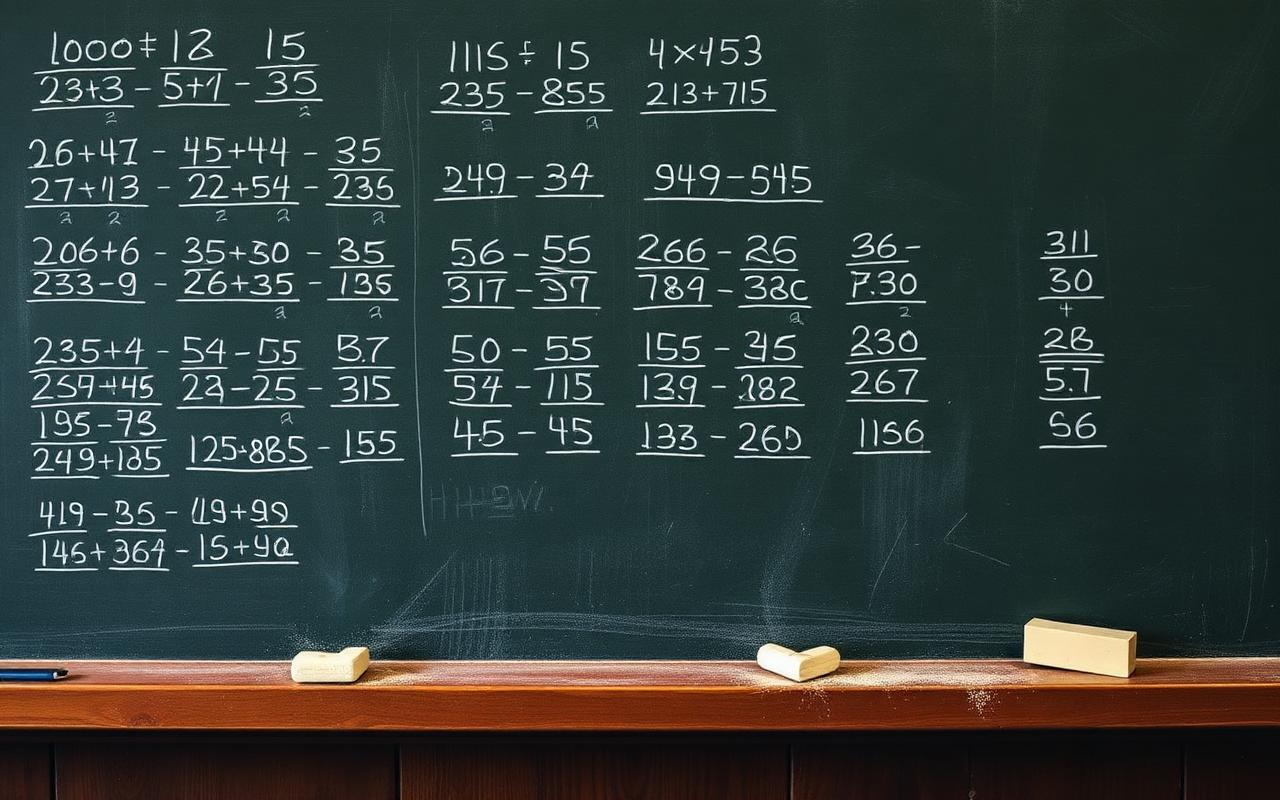 1000 ÷ 12 15
23+3 - 5+1 - 35
2 2
26+47 - 45+44 - 35
27+13 - 22+54 - 236
2 2 2 2 2
206+6 - 35+30 - 35
233-9 - 26+35 - 136
2 2
235+4 - 54-55 5.7
259+45 23-25 - 315
2
195-73
249+135 125+885 - 155
419-35 - 119+99
146+364 - 15+90
1115 ÷ 15 4×453
235 - 855 213+715
2 2
249 - 34 949-545
56 - 55 266 - 26 36-
317 - 37 789 - 38c 7.30
2 2
50 - 55 155 - 345 230
54 - 115 139 - 282 267
45 - 45 133 - 260 1156
311
30
4
28
5.7
56